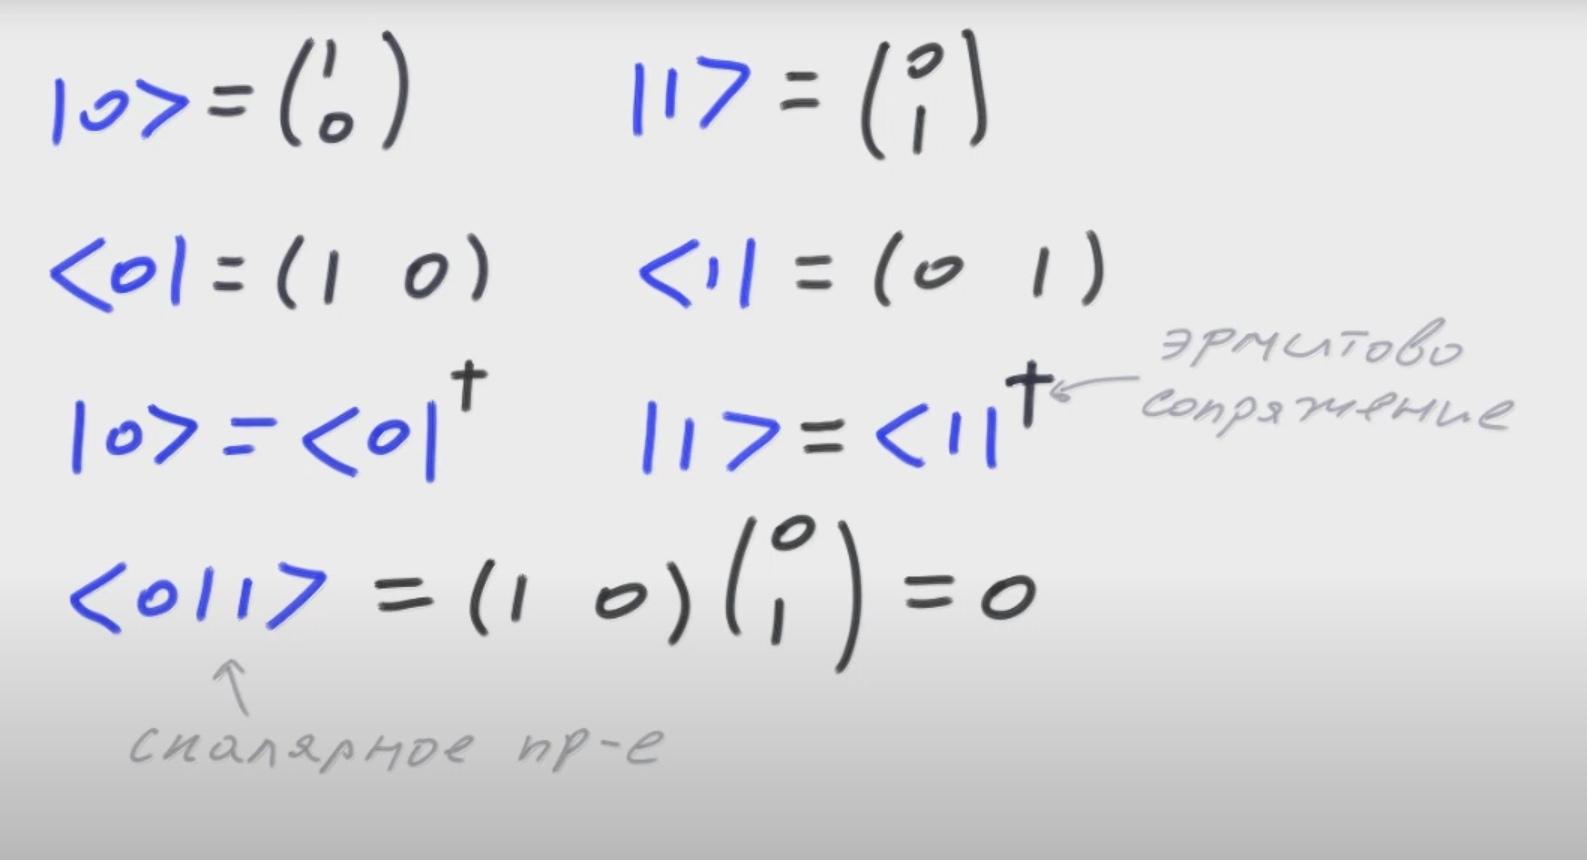 |0> = (1 0) |1> = (0 1)
<0| = (1 0) <1| = (0 1)
|0> = <0|† |1> = <1|†
эрмитово
сопряжение
<0|1> = (1 0) (0 1) = 0
скалярное пр-е